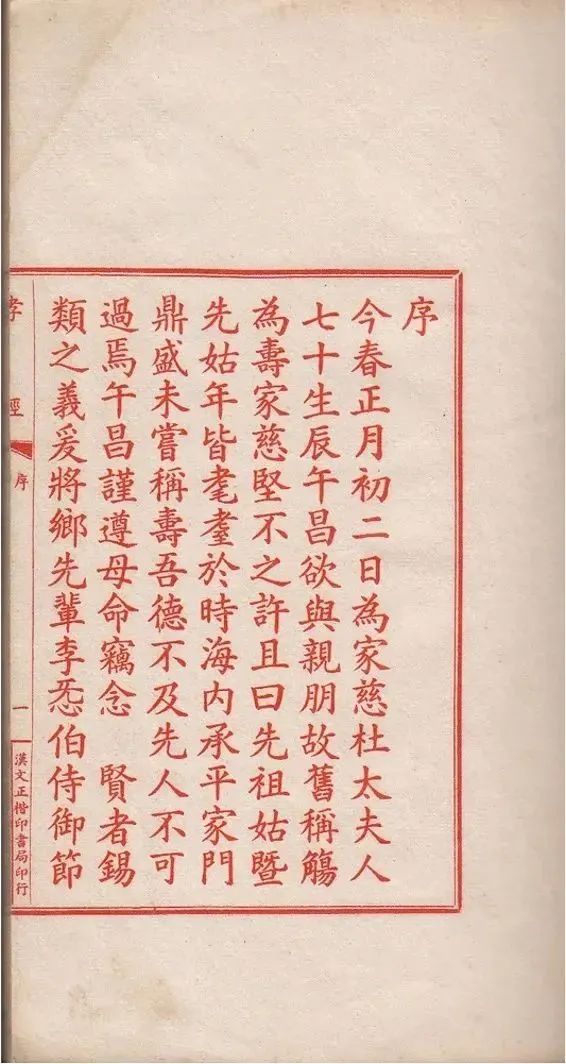 序
今春正月初二日為家慈杜太夫人
七十生辰午昌欲與親朋故舊稱觴
為壽家慈堅不之許且曰先祖姑暨
先姑年皆耄耋於時海內承平家門
鼎盛未嘗稱壽吾德不及先人不可
過焉午昌謹遵母命竊念　賢者錫
類之義爰將鄉先輩李炁伯侍御節
孝經
序
一
漢文正楷印書局印行